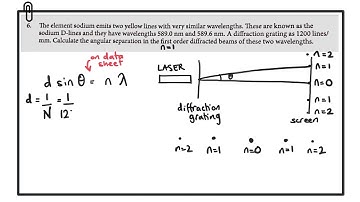 6. The element sodium emits two yellow lines with very similar wavelengths. These are known as the
sodium D-lines and they have wavelengths 589.0 nm and 589.6 nm. A diffraction grating as 1200 lines/
mm. Calculate the angular separation in the first order diffracted beams of these two wavelengths.
n=1
on data
sheet
d sin θ = n λ
d = 1/N = 1/12
LASER
θ
diffraction
grating
n=2
n=1
n=0
n=1
n=2
screen
n=2 n=1 n=0 n=1 n=2